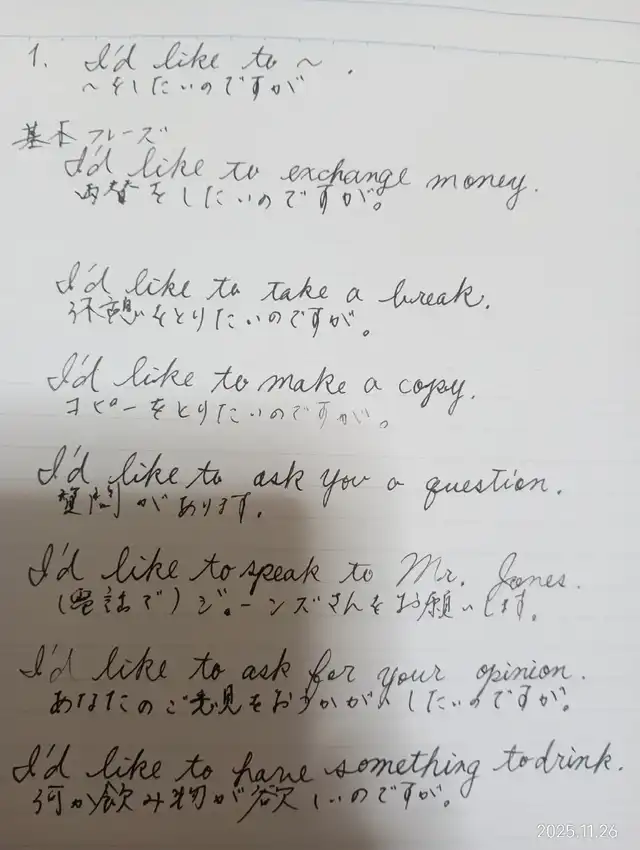 1. I'd like to ~ .
~をしたいのですが
基本フレーズ
I'd like to exchange money.
両替をしたいのですが。
I'd like to take a break.
休憩をとりたいのですが。
I'd like to make a copy.
コピーをとりたいのですが。
I'd like to ask you a question.
質問があります。
I'd like to speak to Mr. Jones.
(電話で)ジョーンズさんをお願いします。
I'd like to ask for your opinion.
あなたのご意見をおうかがいしたいのですが。
I'd like to have something to drink.
何か飲み物が欲しいのですが。
2025.11.26